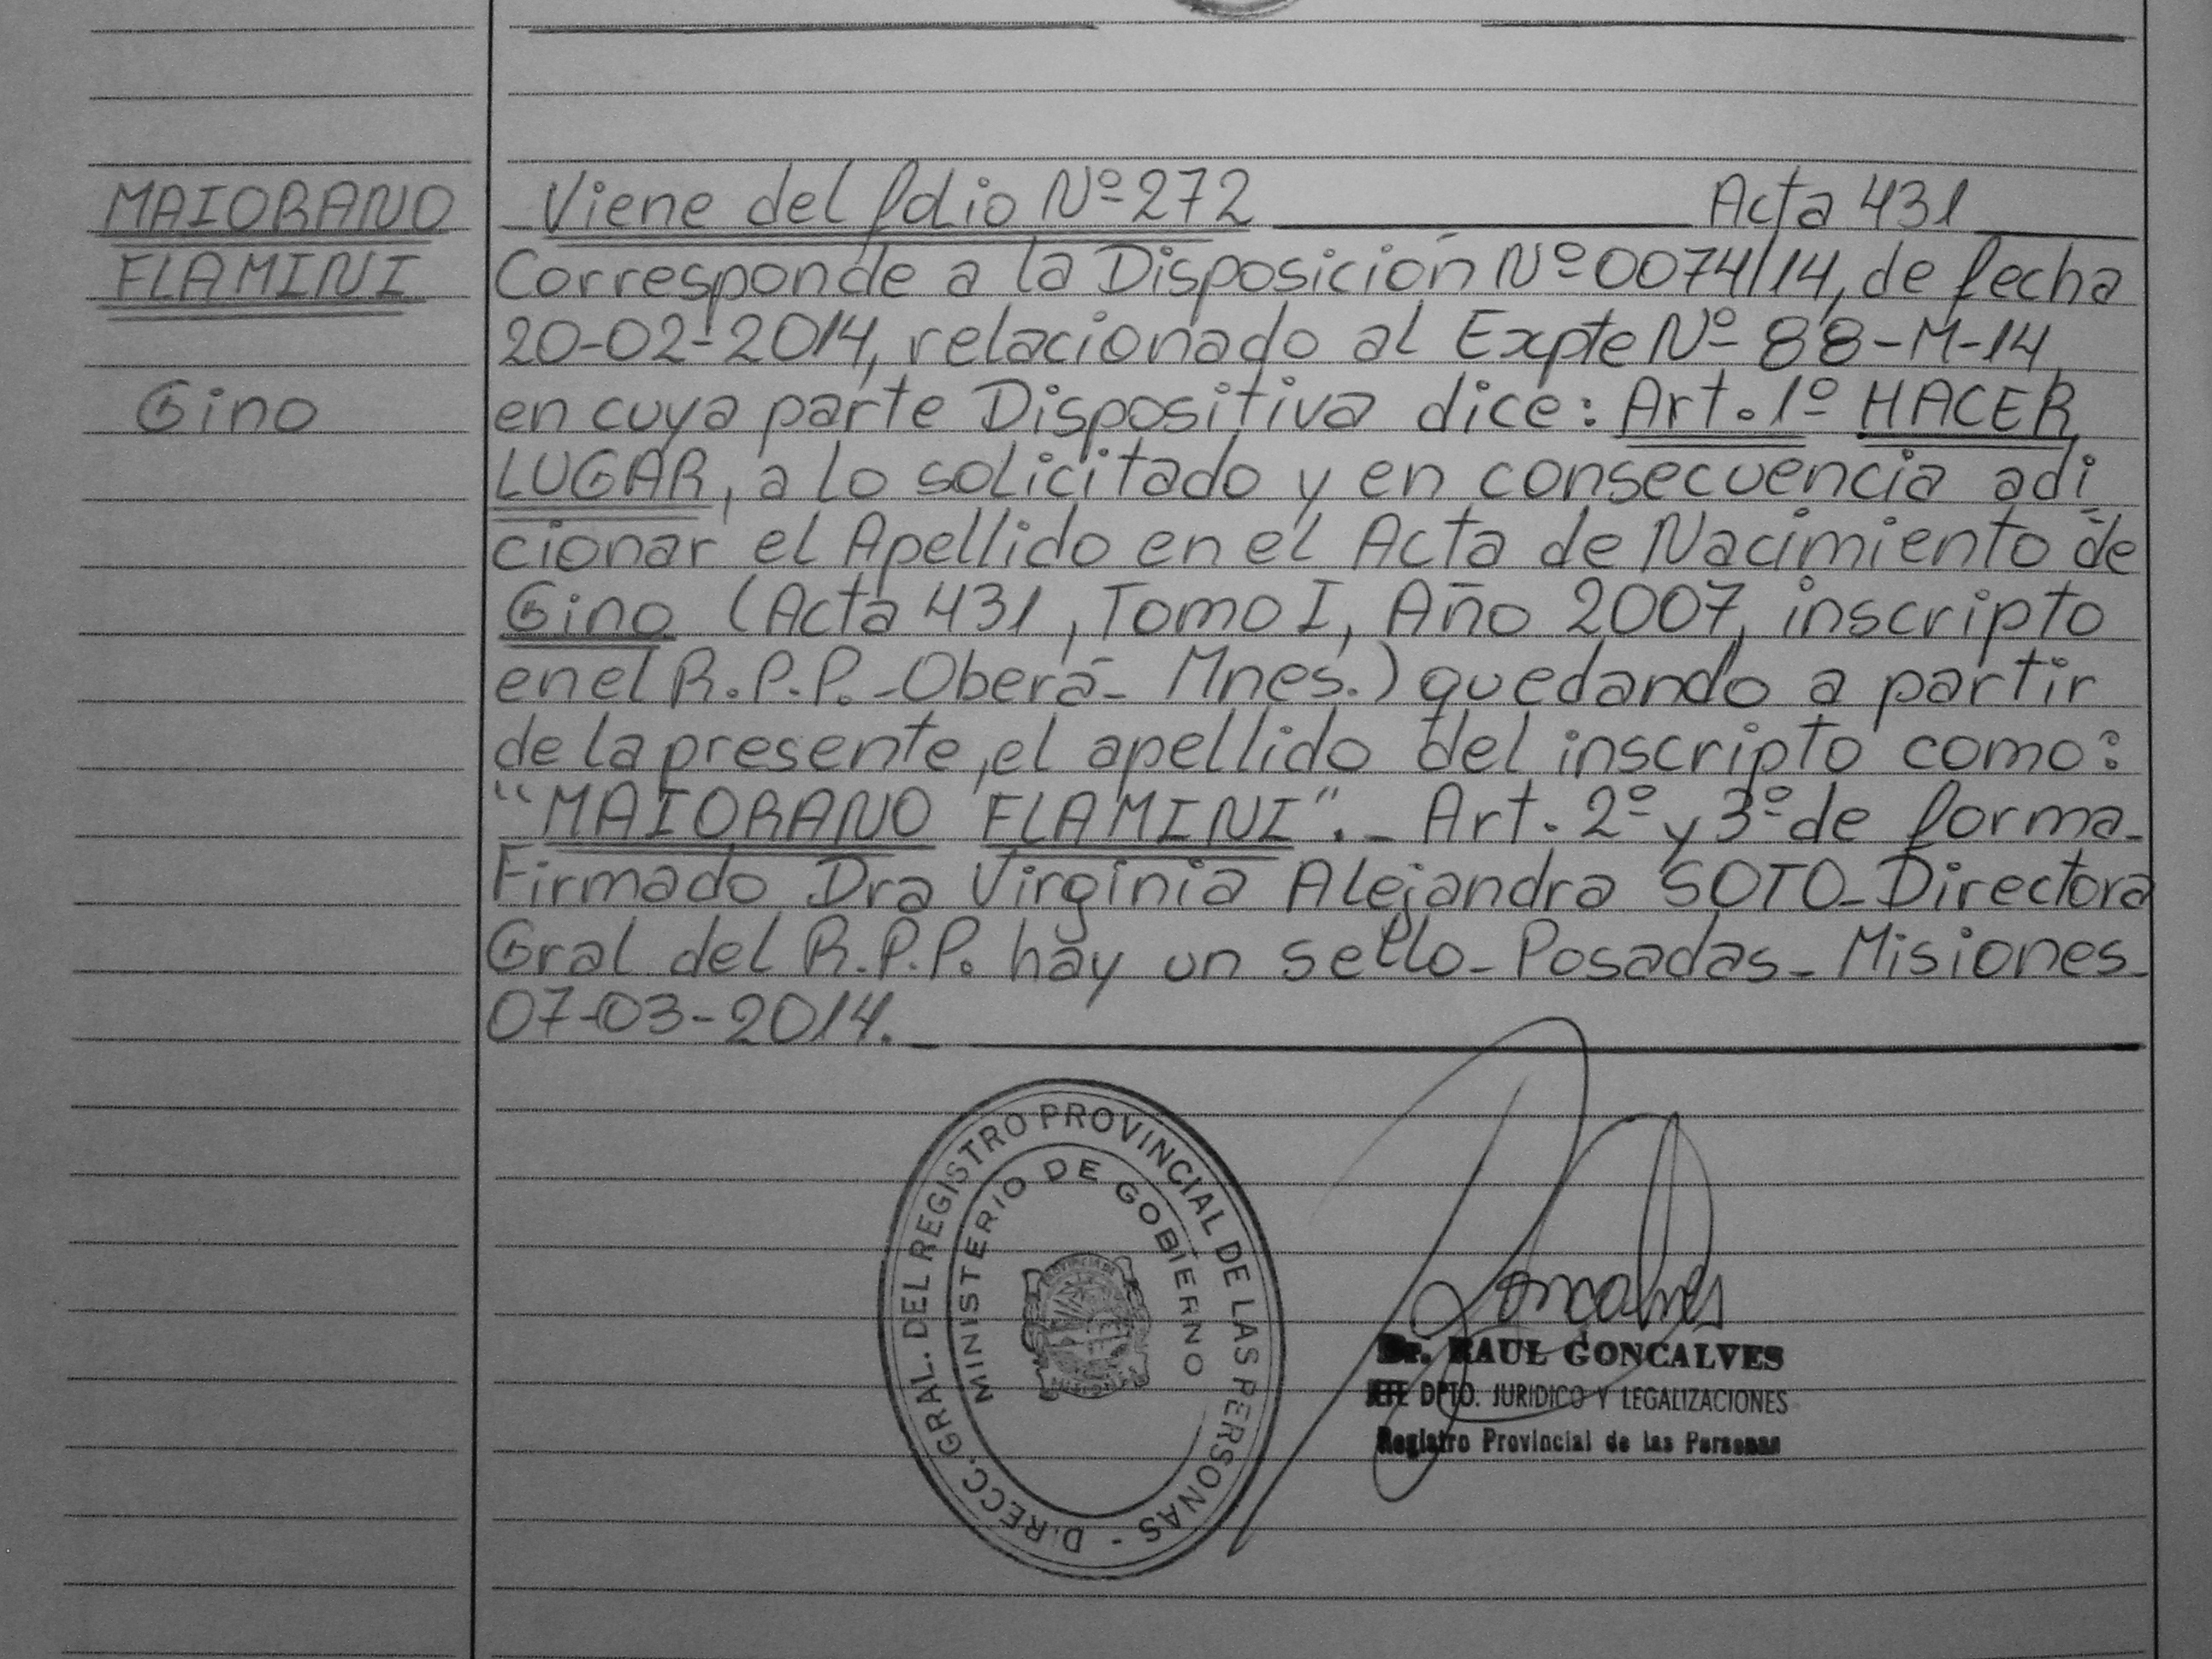 MAIORANO
FLAMINI
Gino
Viene del folio Nº 272 Acta 431
Corresponde a la Disposición Nº 0074/14, de fecha
20-02-2014, relacionado al Expte Nº 88-M-14,
en cuya parte Dispositiva dice: Art. 1º HACER
LUGAR, a lo solicitado y en consecuencia adi
cionar el Apellido en el Acta de Nacimiento de
Gino (Acta 431, Tomo I, Año 2007, inscripto
en el R.P.P. - Oberá - Mnes.) quedando a partir
de la presente, el apellido del inscripto como:
"MAIORANO FLAMINI". - Art. 2º y 3º de forma -
Firmado Dra Virginia Alejandra SOTO - Directora
Gral del R.P.P. hay un sello - Posadas - Misiones -
07-03-2014. -
DIRECC. GRAL. DEL REGISTRO PROVINCIAL DE LAS PERSONAS -
MINISTERIO DE GOBIERNO
PROVINCIA DE
MISIONES
Goncalves
Dr. RAUL GONCALVES
JEFE DPTO. JURIDICO Y LEGALIZACIONES
Registro Provincial de las Personas